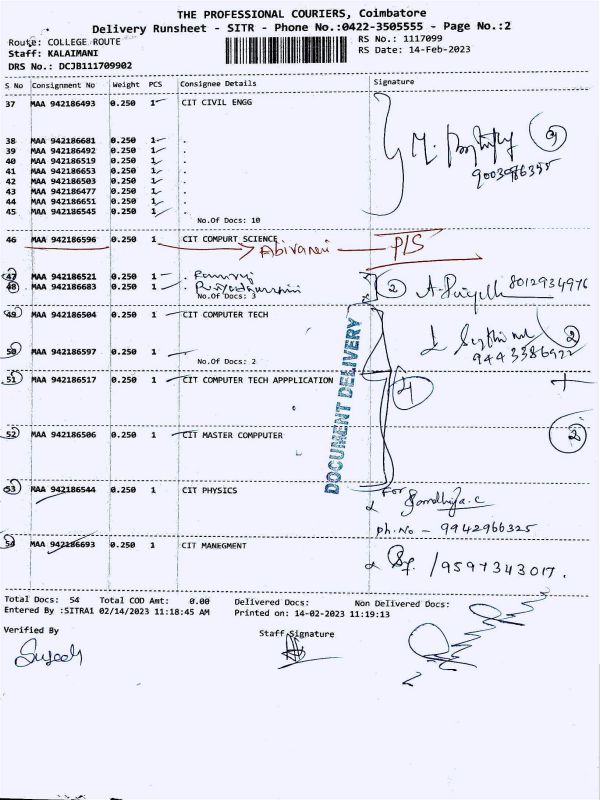 THE PROFESSIONAL COURIERS, Coimbatore
Delivery Runsheet - SITR - Phone No.:0422-3505555 - Page No.:2
Route: COLLEGE ROUTE RS No.: 1117099
Staff: KALAIMANI RS Date: 14-Feb-2023
DRS No.: DCJB111709902
S No Consignment No Weight PCS Consignee Details Signature
37 MAA 942186493 0.250 1 CIT CIVIL ENGG
38 MAA 942186681 0.250 1 .
39 MAA 942186492 0.250 1 .
40 MAA 942186519 0.250 1 .
41 MAA 942186653 0.250 1 .
42 MAA 942186503 0.250 1 .
43 MAA 942186477 0.250 1 .
44 MAA 942186651 0.250 1 .
45 MAA 942186545 0.250 1 .
No.Of Docs: 10
46 MAA 942186596 0.250 1 CIT COMPURT SCIENCE
Abirami P/S
47 MAA 942186521 0.250 1 .
48 MAA 942186683 0.250 1 . 2 8012934976
No.Of Docs: 3
49 MAA 942186504 0.250 1 CIT COMPUTER TECH
2
50 MAA 942186597 0.250 1 . 9443386922
No.Of Docs: 2
51 MAA 942186517 0.250 1 CIT COMPUTER TECH APPPLICATION
4
52 MAA 942186506 0.250 1 CIT MASTER COMPPUTER
DOCUMENT DELIVERY
53 MAA 942186544 0.250 1 CIT PHYSICS For
Ph.No - 9942966325
54 MAA 942186693 0.250 1 CIT MANEGMENT
/9597343017.
Total Docs: 54 Total COD Amt: 0.00 Delivered Docs: Non Delivered Docs:
Entered By :SITRA1 02/14/2023 11:18:45 AM Printed on: 14-02-2023 11:19:13
Verified By Staff Signature